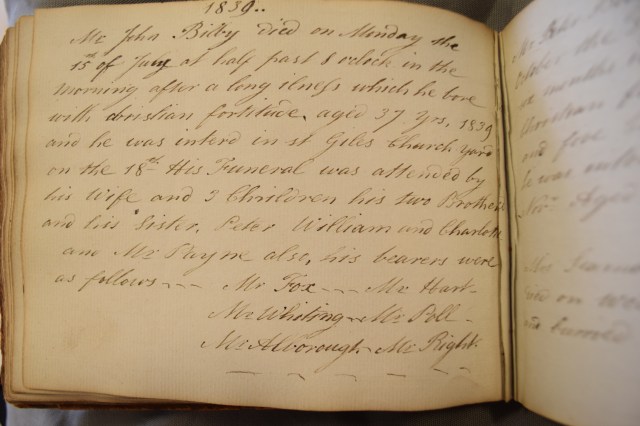 1839..
Mr John Bilby died on Monday the
15th of July at half past 8 oclock in the
morning after a long ilness which he bore
with christian fortitude. aged 37 yrs, 1839
and he was interd in st Giles Church yard
on the 18th His Funeral was attended by
his Wife and 3 Children his two Brothers
and his Sister, Peter William and Charlotte
and Mr Payne also, his bearers were
as follows -- Mr Fox -- Mr Hart-
Mr Whiting - Mr Poll -
Mr Alborough - Mr Right.
Mr
October the
a months
Christian
and five
he was
Novr Aged
on